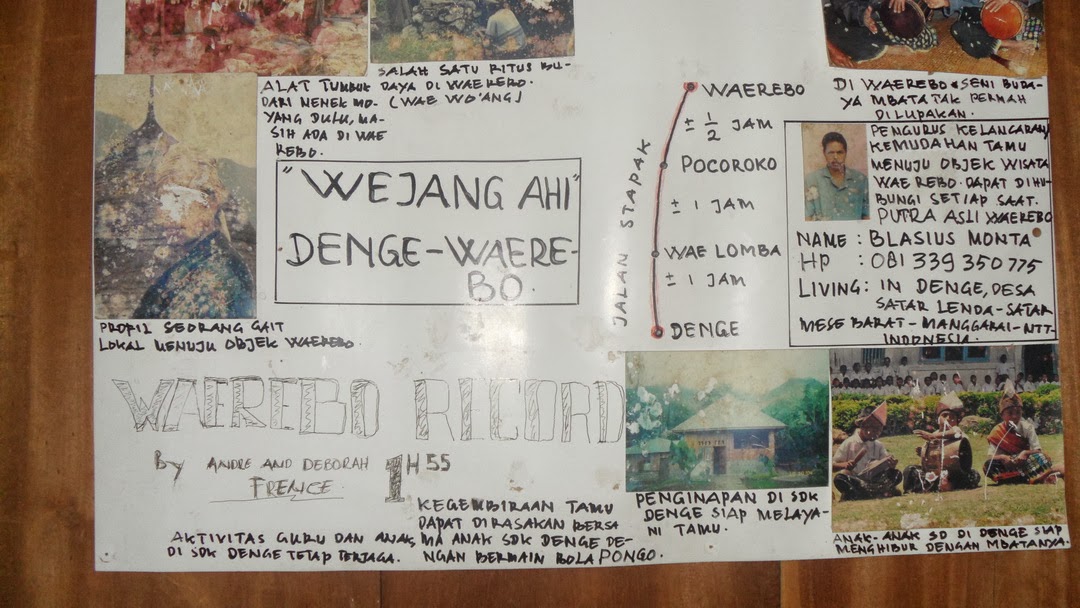 SALAH SATU RITUS BU-
DAYA DI WAEREBO.
(WAE WO'ANG)
ALAT TUMBUK
DARI NENEK MO-
YANG DULU, MA-
SIH ADA DI WAE
REBO.
"WEJANG AHI"
DENGE-WAERE-
BO.
PROFIL SEORANG GAIT
LOKAL MENUJU OBJEK WAEREBO.
JALAN STAPAK
WAEREBO
± 1/2 JAM
POCOROKO
± 1 JAM
WAE LOMBA
± 1 JAM
DENGE
DI WAEREBO SENI BUDA-
YA MBATA TAK PERNAH
DILUPAKAN.
PENGURUS KELANCARAN/
KEMUDAHAN TAMU
MENUJU OBJEK WISATA
WAE REBO. DAPAT DIHU-
BUNGI SETIAP SAAT.
PUTRA ASLI WAEREBO
NAME : BLASIUS MONTA
HP : 081 339 350 775
LIVING: IN DENGE, DESA
SATAR LENDA-SATAR
MESE BARAT-MANGGARAI-NTT-
INDONESIA.
WAEREBO RECORD
By ANDRE AND DEBORAH
FRENCE.
1H55
AKTIVITAS GURU DAN ANAK
DI SDK DENGE TETAP TERJAGA.
KEGEMBIRAAN TAMU
DAPAT DIRASAKAN BERSA
MA ANAK SDK DENGE DE-
NGAN BERMAIN BOLA PONGO.
PENGINAPAN DI SDK
DENGE SIAP MELAYA-
NI TAMU.
ANAK-ANAK SD DI DENGE SIAP
MENGHIBUR DENGAN MBATANYA.